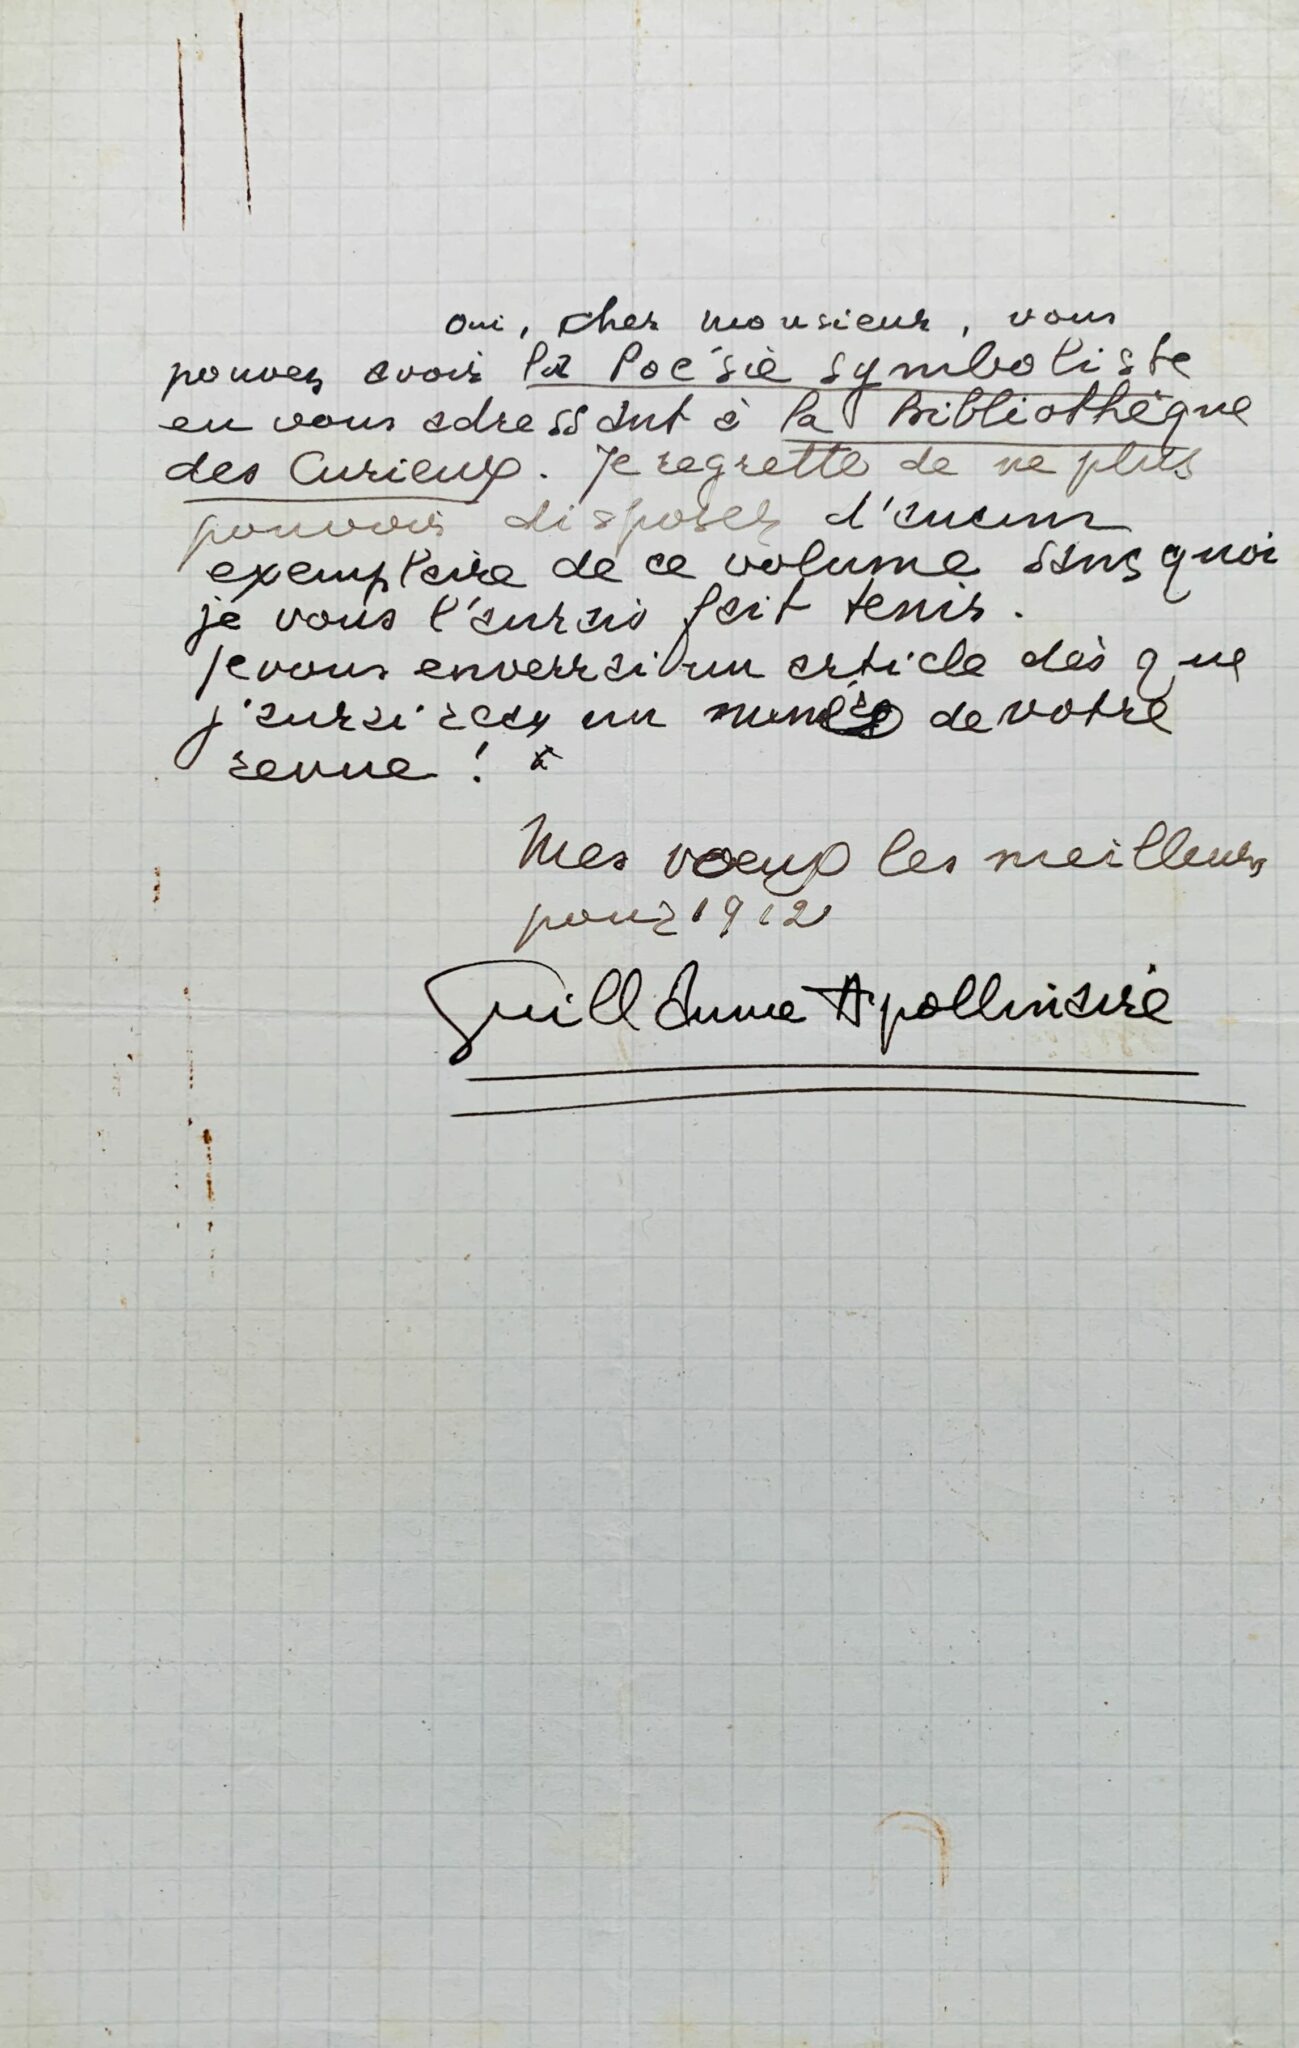 Oui, cher monsieur, vous
pouvez avoir la Poésie symboliste
en vous adressant à la Bibliothèque
des Curieux. Je regrette de ne plus
pouvoir disposer d'aucun
exemplaire de ce volume sans quoi
je vous l'aurais fait tenir.
Je vous enverrai un article dès que
j'aurai reçu un numéro de votre
revue !
Mes vœux les meilleurs
pour 1912
Guillaume Apollinaire